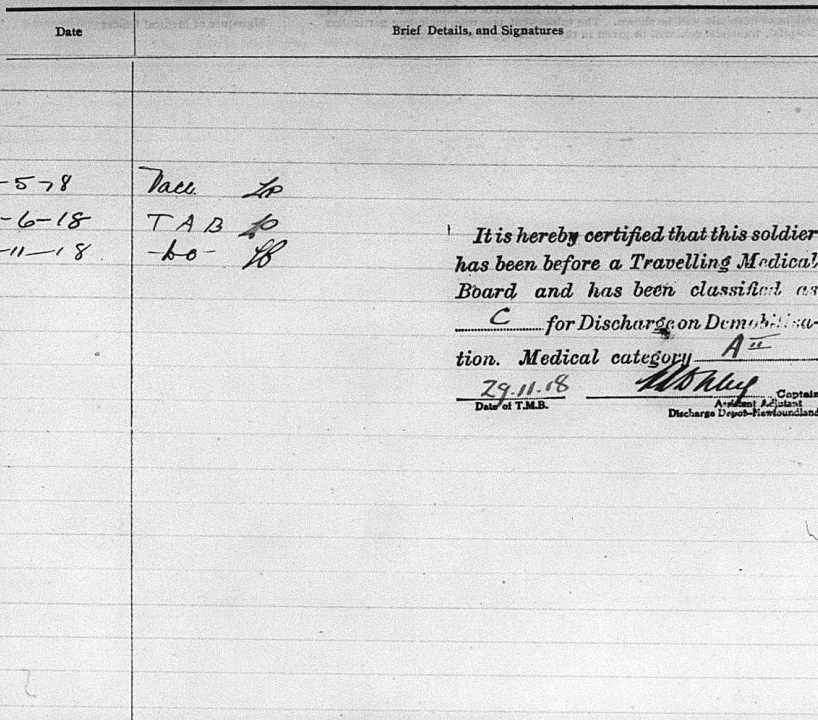 Date Brief Details, and Signatures
-5-18 Vacc.
-6-18 T A B
-11-18 -do-
It is hereby certified that this soldier
has been before a Travelling Medical
Board and has been classified as
C for Discharge on Demobilisa-
tion. Medical category A II
29.11.18 Captain
Date of T.M.B. Assistant Adjutant
Discharge Depot-Newfoundland